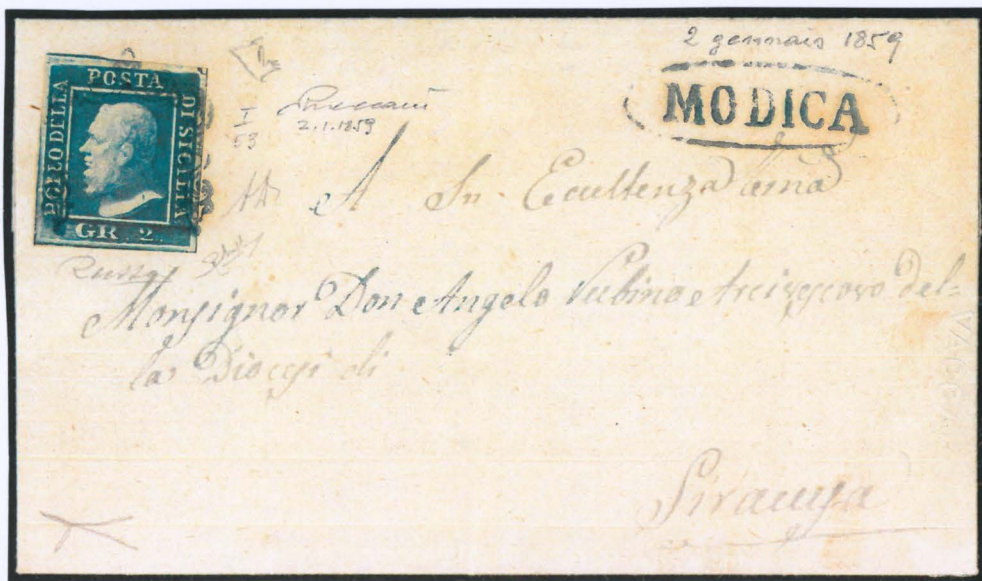 2 gennaio 1859
MODICA
POSTA
BOLLO DELLA
DI SICILIA
GR. 2.
I
53
2.1.1859
A Su Eccellenza
Monsignor Don Angelo Rubino Arcivescovo del=
la Diocesi di
Siracusa